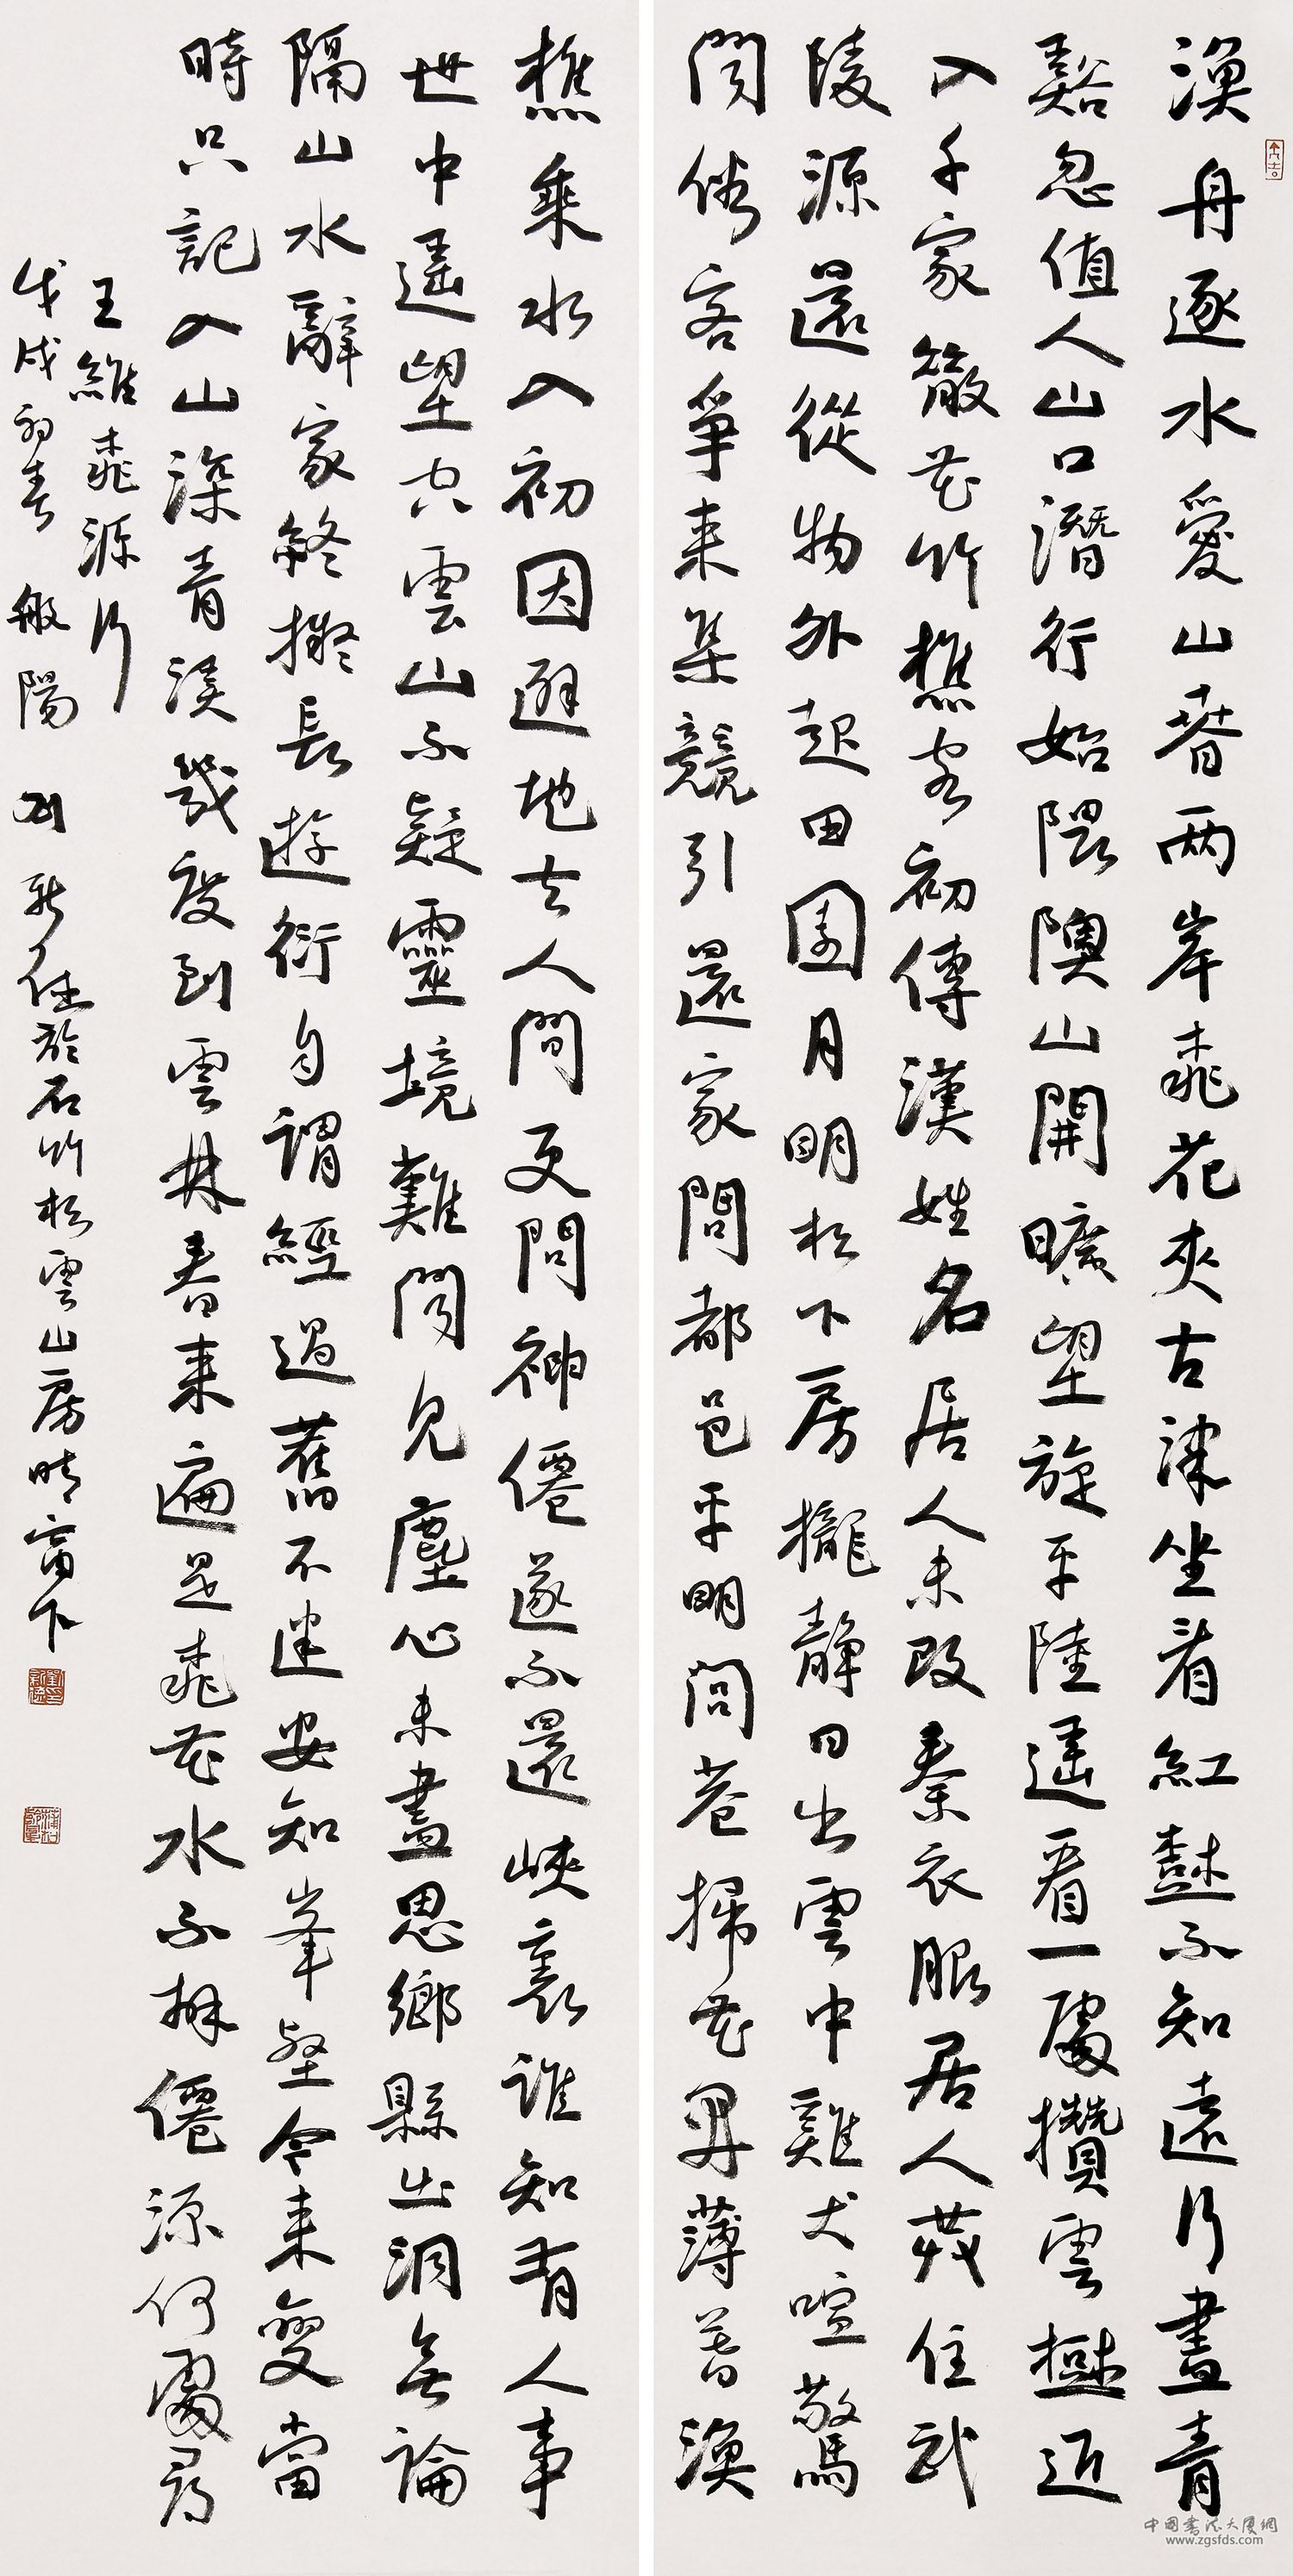 漁舟逐水愛山春两岸桃花夾古津坐看紅樹不知遠行盡青
谿忽值人山口潛行始隈隩山開曠望旋平陸遥看一處攢雲樹近
入千家散花竹樵客初傳漢姓名居人未改秦衣服居人共住武
陵源還從物外起田園月明松下房櫳靜日出雲中雞犬喧驚
聞俗客爭来集競引還家問都邑平明閭巷掃花開薄暮漁
樵乘水入初因避地去人間更問神僊遂不還峽裏誰知有人事
世中遥望空雲山不疑靈境難聞見塵心未盡思鄉縣出洞無論
隔山水辭家終擬長遊衍自謂經過舊不迷安知峯壑今来變當
時只記入山深青溪幾度到雲林春来遍是桃花水不辨僊源何處尋
王維桃源行
戊戌初春 般陽 劉新於石竹松雲山房晴窗下
中国书法大厦網
www.zgsfds.com